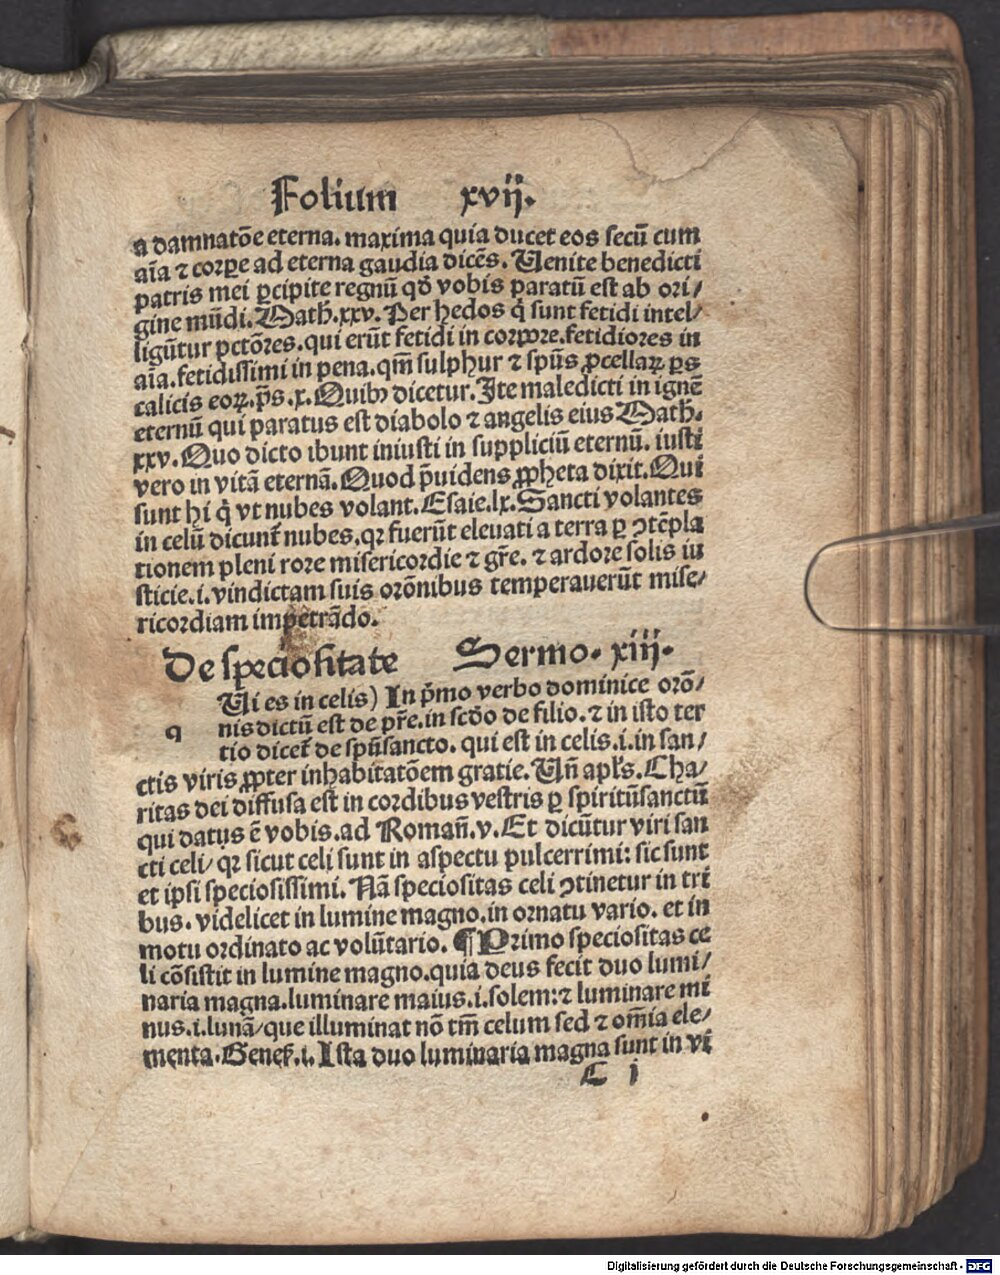 Folium xvij.
a damnatōe eterna. maxima quia ducet eos secū cum
aīa ⁊ corꝑe ad eterna gaudia dicēs. Uenite benedicti
patris mei ꝑcipite regnū qđ vobis paratū est ab ori/
gine mūdi. Math̄. xxv. Per hedos q̇ sunt fetidi intel/
ligūtur pctōres. qui erūt fetidi in corpore. fetidiores in
aīa. fetidissimi in pena. qm̄ sulphur ⁊ spūs ꝓcellaꝝ ps
calicis eoꝝ. p̄s. x. Quibꝰ dicetur. Ite maledicti in ignē
eternū qui paratus est diabolo ⁊ angelis eius Math̄.
xxv. Quo dicto ibunt iniusti in suppliciū eternū. iusti
vero in vitā eternā. Quod p̄uidens ꝓpheta dixit. Qui
sunt hi q̇ vt nubes volant. Esaie. lx. Sancti volantes
in celū dicunt̄ nubes, qꝛ fuerūt eleuati a terra ꝑ ꝯtēpla
tionem pleni rore misericordie ⁊ gr̄e. ⁊ ardore solis iu
sticie. i. vindictam suis orōnibus temperauerūt mise/
ricordiam impetrādo.
De speciositate Sermo. xiij.
q Ui es in celis) In p̄mo verbo dominice orō/
nis dictū est de pr̄e. in scđo de filio. ⁊ in isto ter
tio dicet̄ de spūsancto. qui est in celis. i. in san/
ctis viris ꝓpter inhabitatōem gratie. Un̄ apl's. Cha/
ritas dei diffusa est in cordibus vestris ꝑ spiritūsanctū
qui datus ē vobis. ad Roman̄. v. Et dicūtur viri san
cti celi/ qꝛ sicut celi sunt in aspectu pulcerrimi: sic sunt
et ipsi speciosissimi. Nā speciositas celi ꝯtinetur in tri
bus. videlicet in lumine magno. in ornatu vario. et in
motu ordinato ac volūtario. ¶ Primo speciositas ce
li cōsistit in lumine magno. quia deus fecit duo lumi/
naria magna. luminare maius. i. solem: ⁊ luminare mi
nus. i. lunā/ que illuminat nō tm̄ celum sed ⁊ om̄ia ele/
menta. Genes̄. i. Ista duo luminaria magna sunt in vi
C i
Digitalisierung gefördert durch die Deutsche Forschungsgemeinschaft - DFG